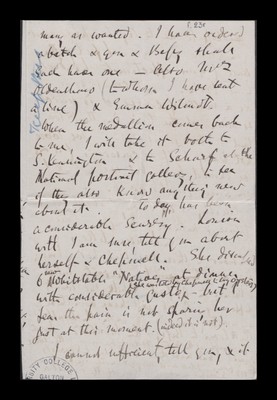 many as wanted. I have ordered
a batch & you & Bessy shall
each have one — Also Mrs
(to whom I have sent
a line) & Emma Wilmot.
When the medallion comes back
to me, I will take it both to
S. Kensington & to Scharf at the
National portrait gallery, & see
if they also know anything new
about it. To day has been
a considerable
with I am sure, tell you about
herself & Chepmell. She
6 "Native" at dinner
with considerable gusto — but
fear the pain is not spared her
just at this moment. (indeed it is not).
I cannot sufficiently tell you, & it
TRINITY COLLEGE
GALTON